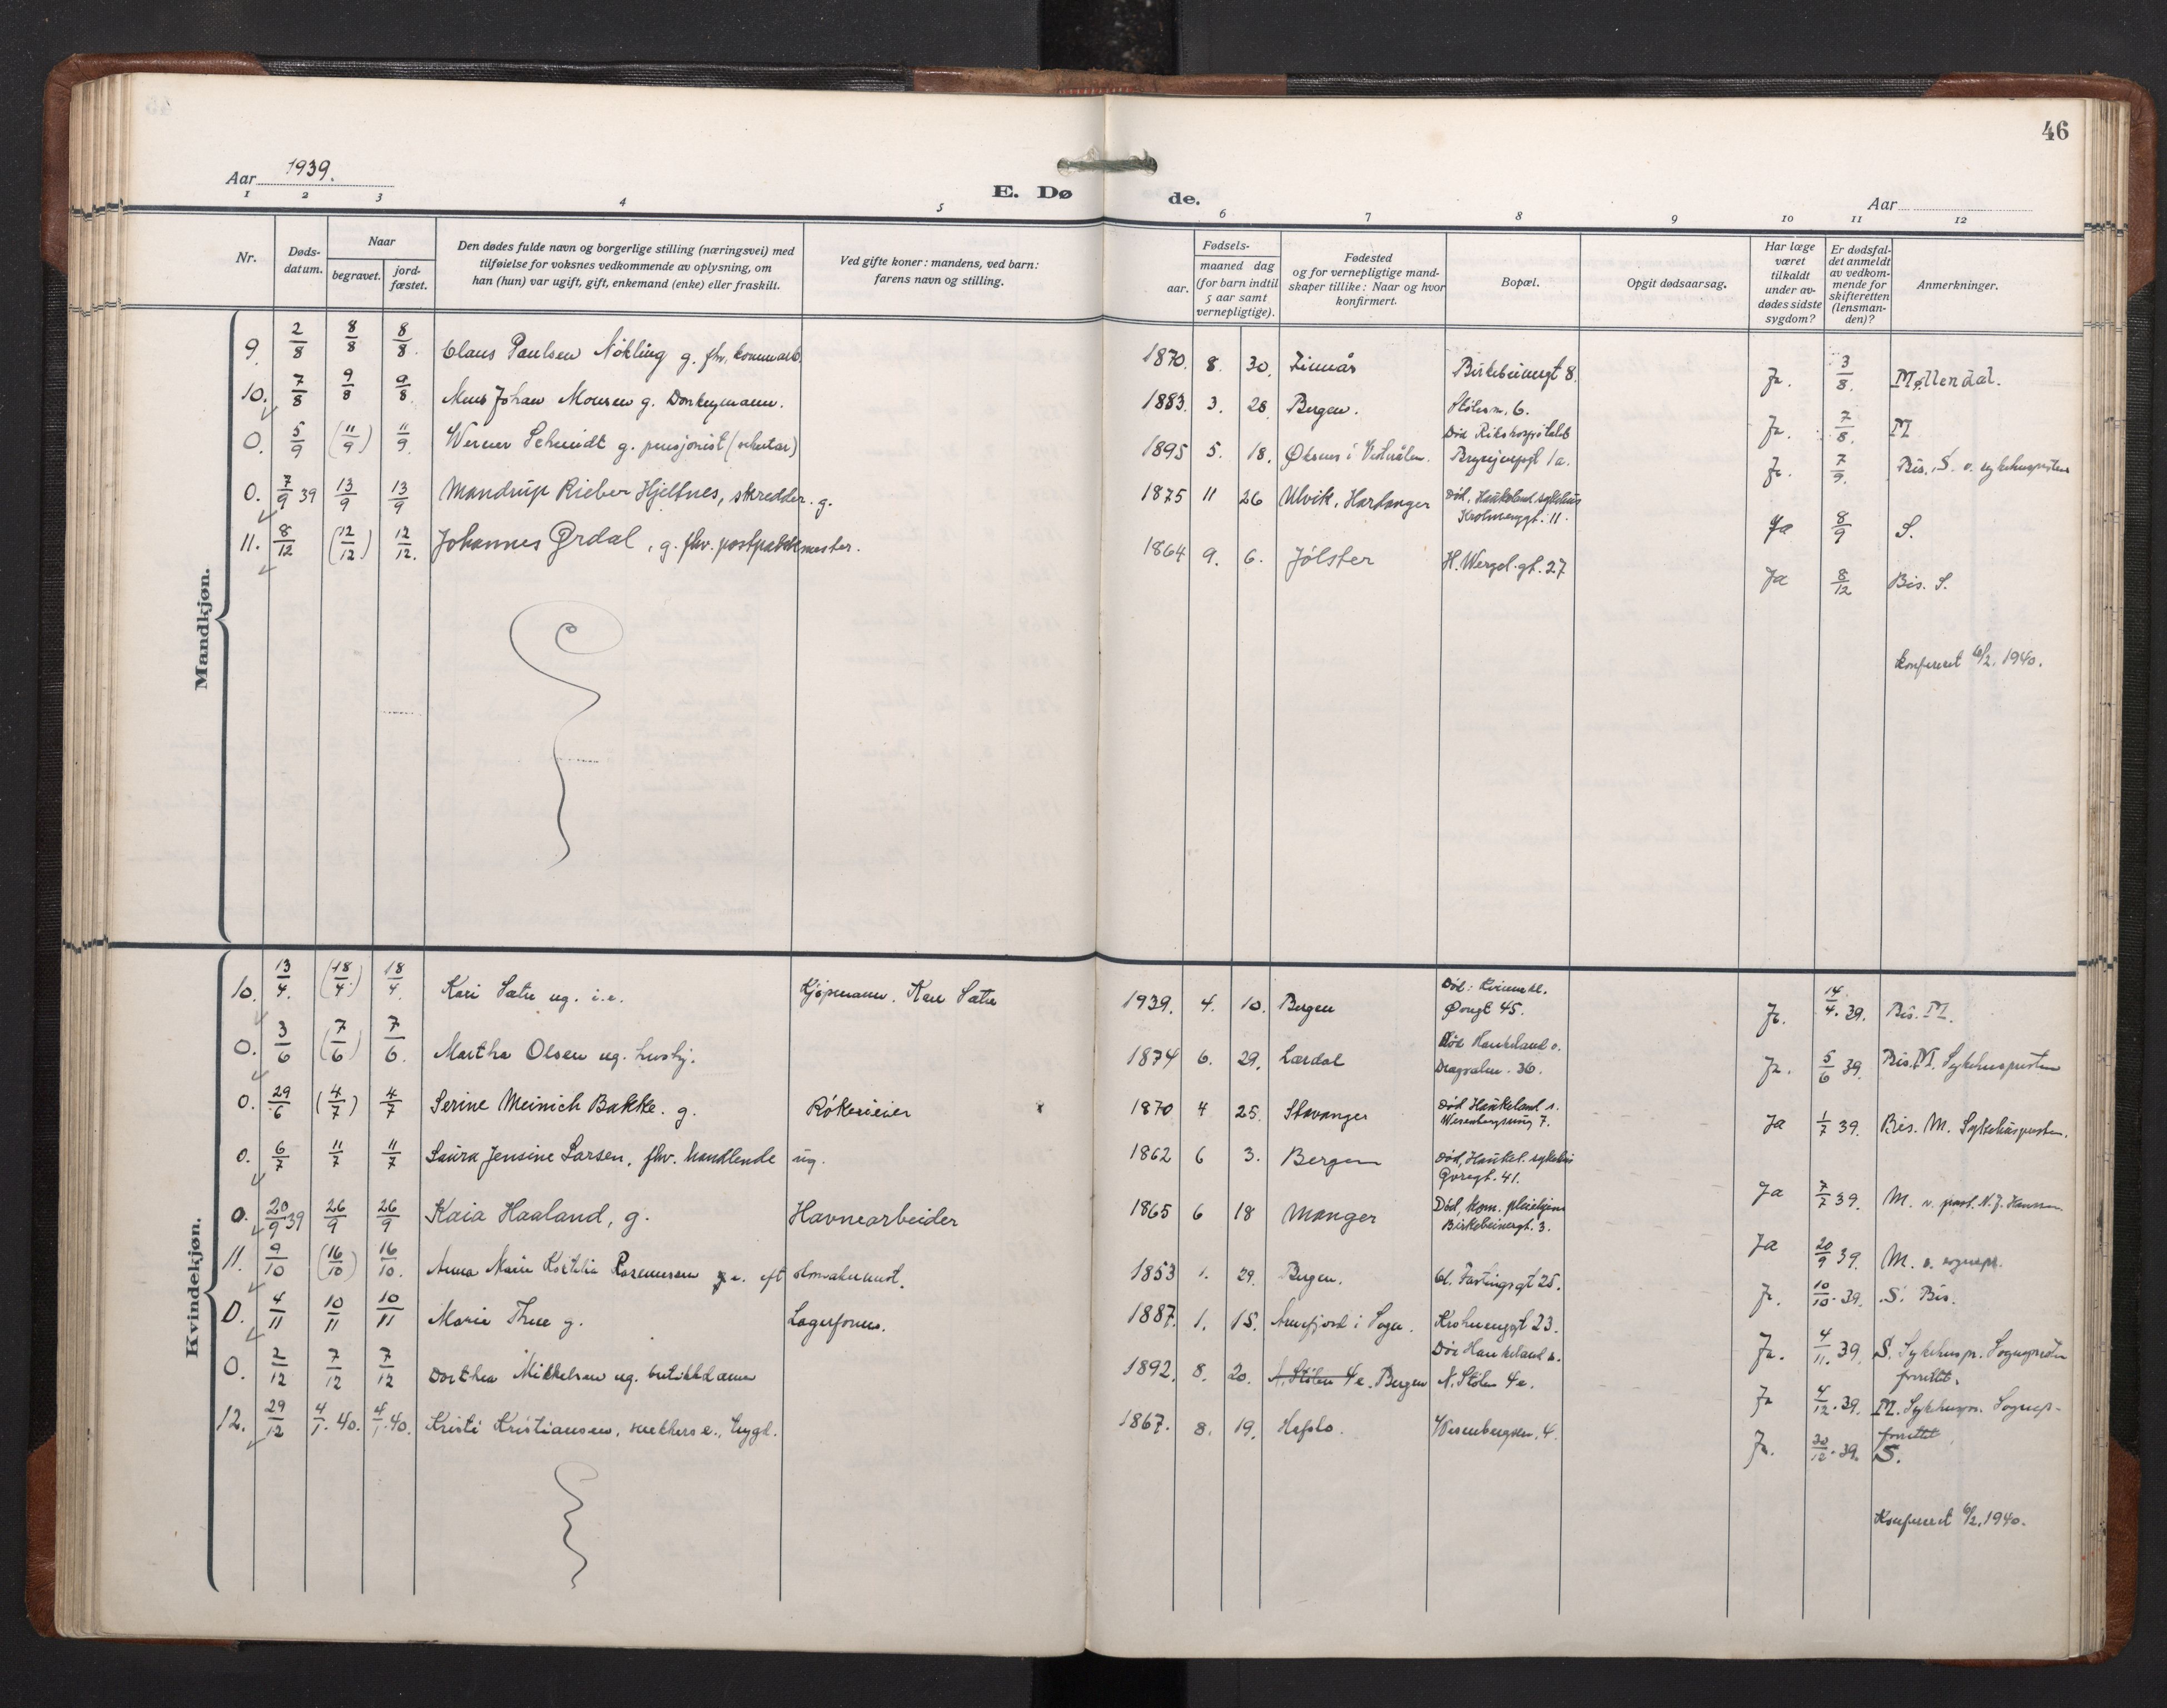 46
Aar 1939.
E. Dø de.
Aar
1 2 3 4 5 6 7 8 9 10 11 12
Nr.
Døds-
datum.
Naar
begravet.
jord-
fæstet.
Den dødes fulde navn og borgerlige stilling (næringsvei) med
tilføielse for voksnes vedkommende av oplysning, om
han (hun) var ugift, gift, enkemand (enke) eller fraskilt.
Ved gifte koner: mandens, ved barn:
farens navn og stilling.
Fødsels-
aar.
maaned dag
(for barn indtil
5 aar samt
vernepligtige).
Fødested
og for vernepligtige mand-
skaper tillike: Naar og hvor
konfirmert.
Bopæl.
Opgit dødsaarsag.
Har læge
været
tilkaldt
under av-
dødes sidste
sygdom?
Er dødsfal-
det anmeldt
av vedkom-
mende for
skifteretten
(lensman-
den)?
Anmerkninger.
Mandkjøn.
9. 2/8 8/8 8/8. Claus Paulsen Nökling g. fhv. kommuarb. 1870. 8. 30. Birkebeinergt 8. Ja. 3/8. Møllendal.
10. 7/8 9/8 9/8. Mons Johan Monsen g. Donkeymann. 1883. 3. 28. Bergen. Stölesm. 6. Ja. 7/8. M
0. 5/9 (11/9) 11/9. Werner Schmidt g. pensjonist 1895 5. 18. Øksnes i Vesterålen. Död Rikshospitalet
1a. Ja. 7/9. Bis. S. v. sykehuspresten
0. 7/9 39 13/9 13/9 Mandrup Rieber Hjeltnes, skredder. g. 1875 11 26 Ulvik, Hardanger Död, Haukeland sykehus
Krohnenggt. 11. Ja 8/9 S.
11. 8/12 (12/12) 12/12. Johannes Ørdal, g. fhv. postpakkmester. 1864 9. 6. Jölster H. Wergel. gt. 27 Ja 8/12 Bis. S.
Konfereret 6/2. 1940.
Kvindekjøn.
10. 13/4. (18/4) 18/4. Kari Sætre ug. Kjöpmann. Kåre Sætre 1939. 4. 10. Bergen Död: Kvinnekl.
Øvregt 45. Ja. 14/4. 39. Bis. M.
0. 3/6 (7/6) 7/6. Martha Olsen ug. hushj. 1874 6. 29. Lærdal Död Haukeland s.
Dragesalm. 36. Ja. 5/6 39. Bis. M. Sykehuspresten
0. 29/6 (4/7) 4/7 Serine Meinich Bakke. g. Rökerieier 1870 4 25. Stavanger Död Haukeland s.
Wesenbergsmug 7. Ja 1/7 39. Bis. M. Sykehuspresten.
0. 6/7 11/7 11/7 Laura Jensine Larsen, fhv. handlende ug. 1862 6 3. Bergen Död, Haukel. sykehus
Øvregt. 41. Ja 7/7 39. M. v. past. N. J. Hanssen
0. 20/9 39 26/9 26/9 Kaia Haaland, g. Havnearbeider 1865 6 18 Manger Död, kom. pleiehjem
Birkebeinergt. 3. Ja 20/9 39. M. v. sognepr.
11. 9/10 (16/10) 16/10. Anna Marie Rasmussen e. eft 1853 1. 29. Bergen. Cl. Fastingsgt 25. Ja. 10/10. 39. S. Bis.
0. 4/11 10/11 10/11 Marie Thue g. Lagerform. 1887. 1. 15. Arnefjord i Sogn. Krohnenggt 23.
Död Haukeland s. Ja. 4/11. 39. S. Sykehuspr. Sognepresten
forrettet.
0. 2/12 7/12 7/12 Dorthea Mikkelsen ug. butikkdame 1892. 8. 20. N. Stölen 4e. Bergen N. Stölen 4e. Ja 4/12. 39. M. Sykehuspr. Sognepr-
forrettet
12. 29/12 4/1. 40. 4/1. 40. Kristi Kristiansen, snekkers e., trygd. 1867. 8. 19. Hafslo. Wesenbergsm. 4. Ja. 30/12. 39. S.
Konfereret 6/2. 1940.